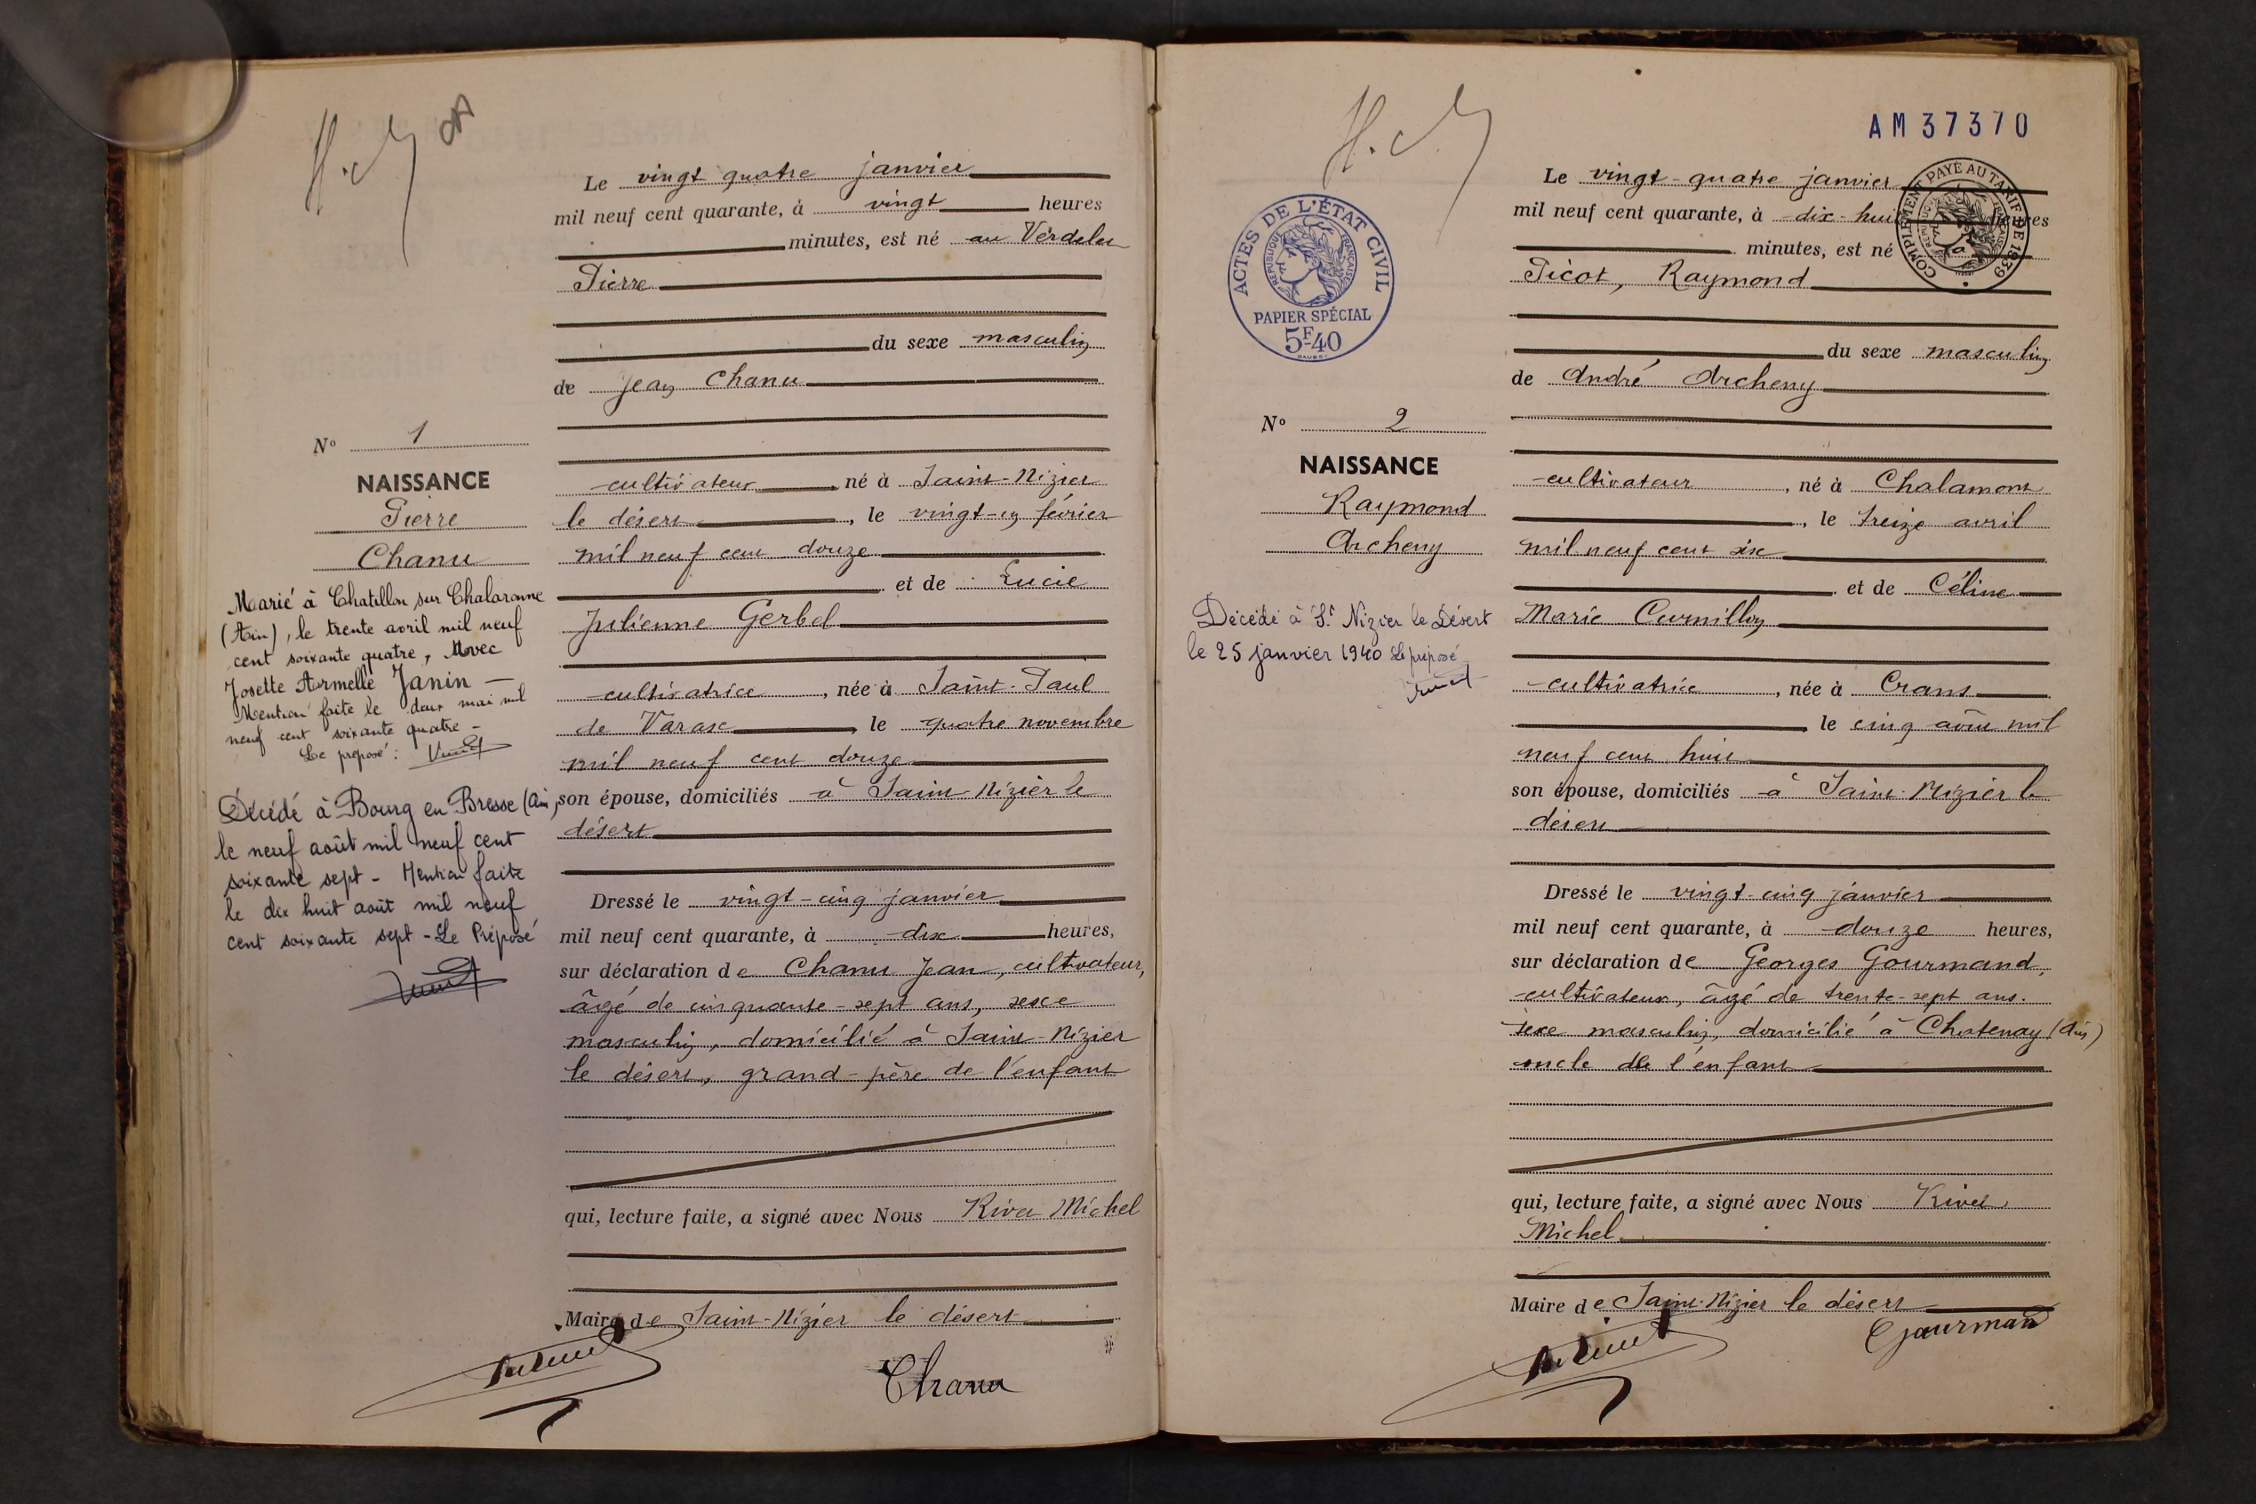 Le vingt quatre janvier
mil neuf cent quarante, à vingt heures
minutes, est né au Verdelet
Pierre
du sexe masculin
de Jean Chanu
N° 1
NAISSANCE
Pierre
Chanu
Marié à Chatillon sur Chalaronne
(Ain), le trente avril mil neuf
cent soixante quatre, Avec
Josette Armelle Janin —
Mention faite le deux mai mil
neuf cent soixante quatre -
Le préposé :
Décédé à Bourg en Bresse (Ain)
le neuf août mil neuf cent
soixante sept - Mention faite
le dix huit août mil neuf
cent soixante sept - Le Préposé
cultivateur, né à Saint-Nizier
le désert, le vingt-un février
mil neuf cent douze
et de Lucie
Julienne Gerbel
cultivatrice, née à Saint-Paul
de Varax, le quatre novembre
mil neuf cent douze
son épouse, domiciliés à Saint Nizier le
désert
Dressé le vingt-cinq janvier
mil neuf cent quarante, à dix heures,
sur déclaration de Chanu Jean, cultivateur,
âgé de cinquante-sept ans, sexe
masculin, domicilié à Saint-Nizier
le désert, grand-père de l'enfant
qui, lecture faite, a signé avec Nous Rivet Michel
Maire de Saint-Nizier le désert
Chanu
AM37370
ACTES DE L'ÉTAT CIVIL
RÉPUBLIQUE FRANÇAISE
PAPIER SPÉCIAL
5F40
COMPLÉMENT PAYÉ AU TARIF DE 1939
RÉPUBLIQUE FRANÇAISE
Le vingt-quatre janvier
mil neuf cent quarante, à dix-huit heures
minutes, est né
Picot, Raymond
du sexe masculin
de André Archeny
N° 2
NAISSANCE
Raymond
Archeny
Décédé à St Nizier le Désert
le 25 janvier 1940 Le préposé
cultivateur, né à Chalamont
, le treize avril
mil neuf cent six
et de Céline
Marie Curnillon
cultivatrice, née à Crans
le cinq août mil
neuf cent huit
son épouse, domiciliés à Saint-Nizier le
désert
Dressé le vingt-cinq janvier
mil neuf cent quarante, à douze heures,
sur déclaration de Georges Gourmand,
cultivateur, âgé de trente-sept ans.
sexe masculin, domicilié à Chatenay (Ain)
oncle de l'enfant
qui, lecture faite, a signé avec Nous Rivet
Michel
Maire de Saint-Nizier le désert
Gourmand